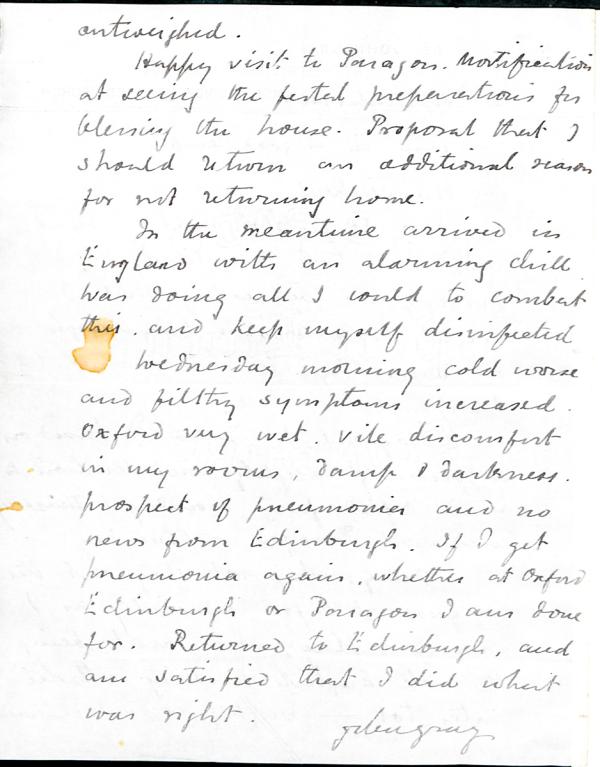 outweighed.
Happy visit to Paragon. Mortification
at seeing the festal preparations for
blessing the house. Proposal that I
should return an additional reason
for not returning home.
In the meantime arrived in
England with an alarming chill
was doing all I could to combat
this. and keep myself disinfected
Wednesday morning cold worse
and filthy symptoms increased.
Oxford very wet. Vile discomfort
in my rooms, damp & darkness.
prospect of pneumonia and no
news from Edinburgh. If I get
pneumonia again, whether at Oxford
Edinburgh or Paragon I am done
for. Returned to Edinburgh, and
am satisfied that I did what
was right.